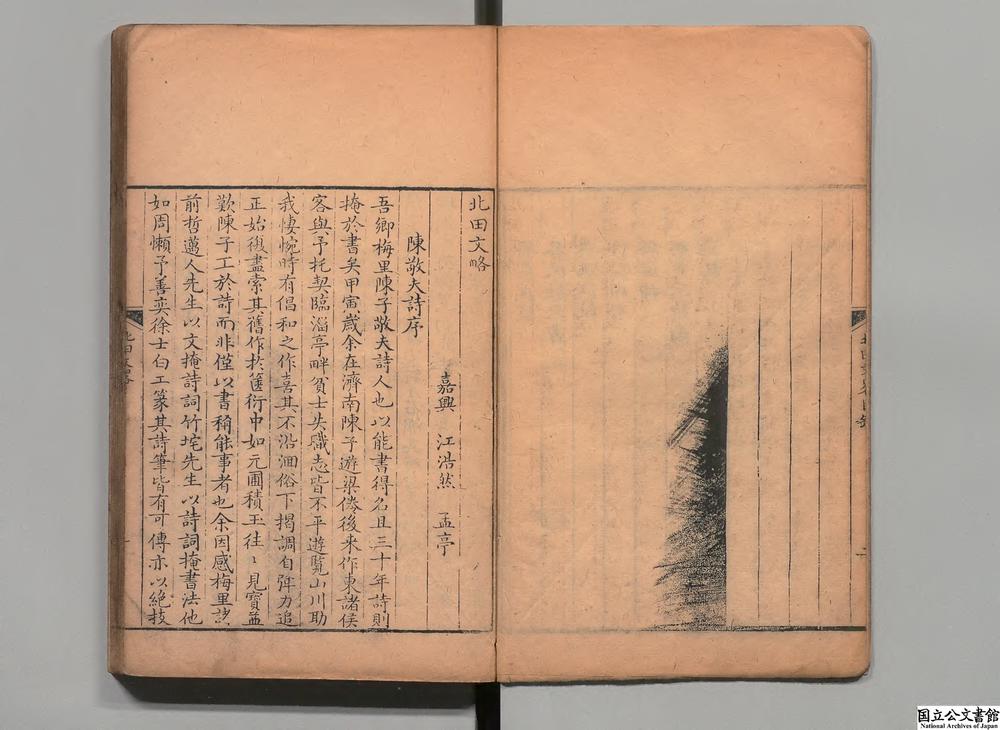 北田文略
嘉興 江浩然 孟亭
陳敬夫詩序
吾鄉梅里陳子敬夫詩人也以能書得名且三十年詩則
掩於書矣甲寅歲余在濟南陳子遊梁倦後來作東諸侯
客與予托契臨淄亭畔貧士失職志皆不平遊覽山川助
我悽惋時有倡和之作喜其不沿洄俗下揭調自弹力追
正始復盡索其舊作於篋衍中如元圃積玉往〻見寶益
歎陳子工於詩而非僅以書稱能事者也余因感梅里諸
前哲邁人先生以文掩詩詞竹垞先生以詩詞掩書法他
如周懶予善奕徐士白工篆其詩筆皆有可傳亦以絶技
北田文略
一
国立公文書館
National Archives of Japan